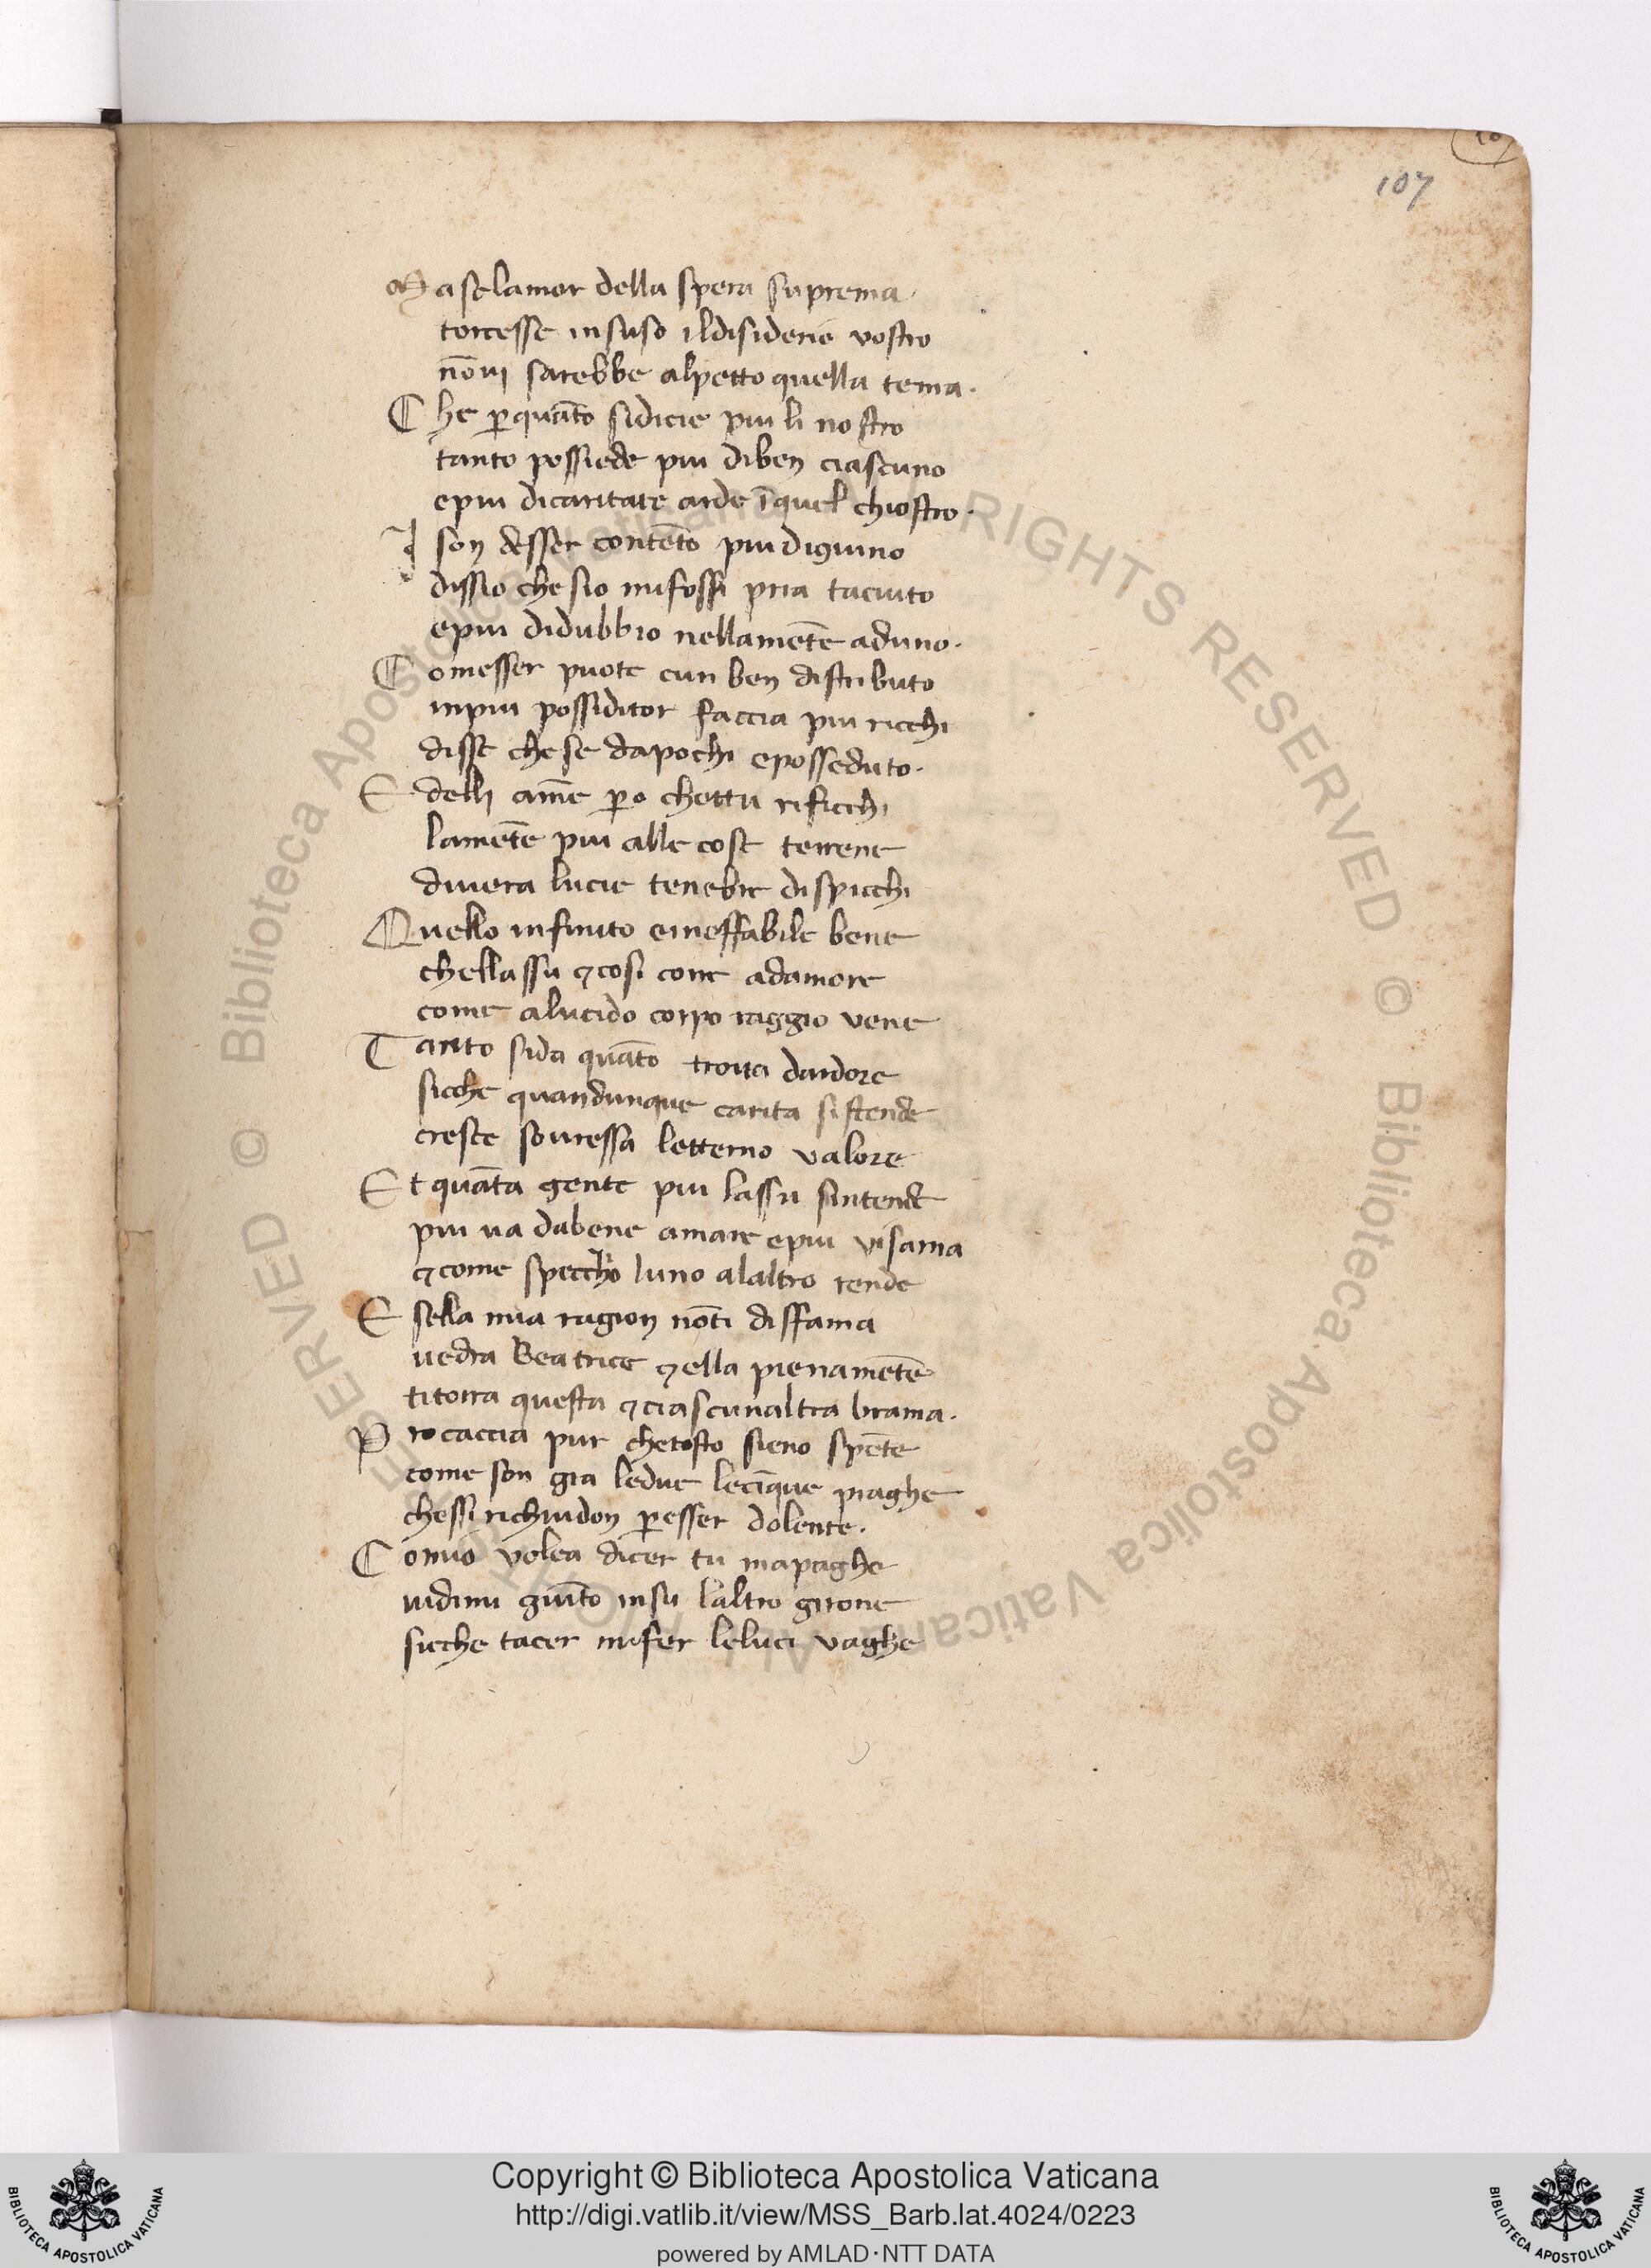 107
Ma selamor della spera suprema.
torcesse insuso ildisiderio vostro
nōui sarebbe alpetto quella tema.
Che ꝑquāto sidicie piu li nostro
tanto possiede piu diben ciascuno
epiu dicaritate arde īquel chiostro.
I son desser contēto piu digiuno
dissio che sio mifossi pria taciuto
epiu didubbio nellamēte aduno.
Comesser puote cun ben distributo
inpiu possiditor faccia piu ricchi
disse che se dapochi eposseduto.
E delli amē ꝑo chettu rificchi
lamēte piu alle cose terrene
diuera lucie tenebre dispicchi
Quello infinito eineffabile bene
chellassu ⁊cosi corre adamore
come alucido corpo raggio vene
Tanto sida quāto troua dardore
sicche quandunque carita sistende
cresce souressa letterno valore
Et quāta gente piu lassu sintende
piu ua dabene amare epiu visama
⁊come specchio luno alaltro rende
E sella mia ragion nōti diffama
uedra Beatrice ⁊ella pienamēte
titorra questa ⁊ciascunaltra brama.
Procaccia pur chetosto sieno spēte
come son gia ledue lecīque piaghe
chessi richiudon ꝑesser dolente.
Comio volea dicer tu mapaghe
uidimi giūto insu laltro girone
sicche tacer mifer leluci vaghe
Copyright © Biblioteca Apostolica Vaticana
http://digi.vatlib.it/view/MSS_Barb.lat.4024/0223
powered by AMLAD·NTT DATA